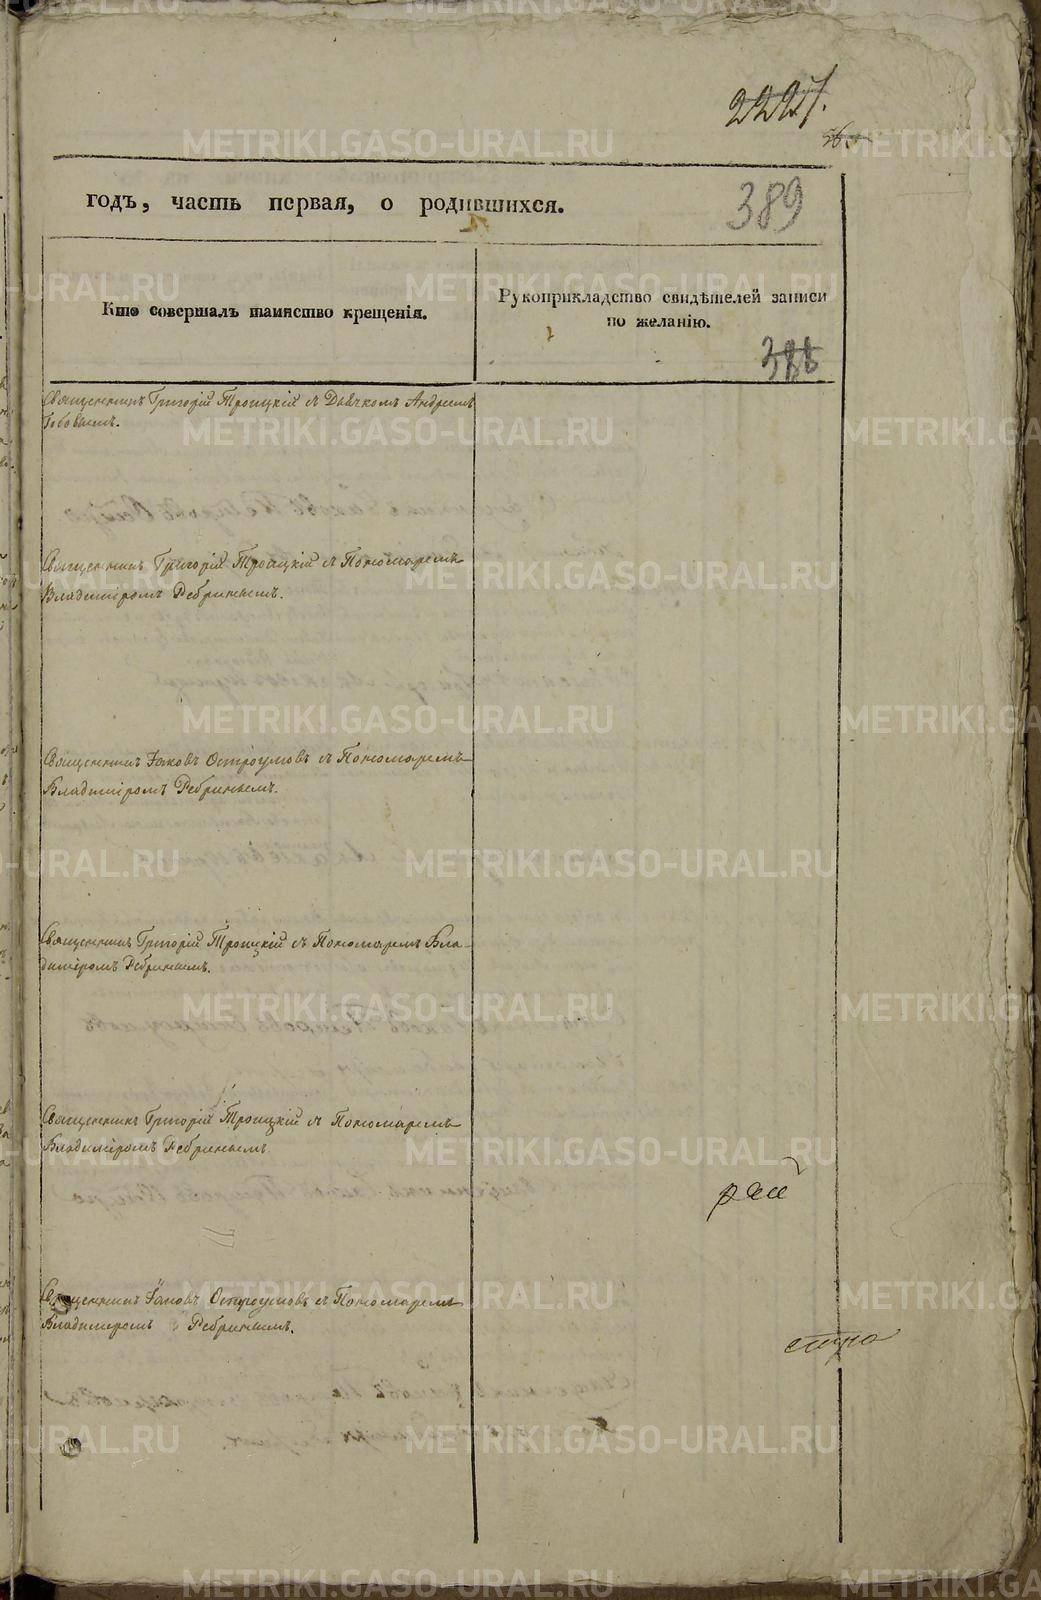 2227.
годъ, часть первая, о родившихся.
389
Кто совершалъ таинство крещенія.
Рукоприкладство свидѣтелей записи
по желанію.
388
Священникъ Григорій Троицкій съ Дьячкомъ Андреемъ
Священникъ Григорій Троицкій съ Пономаремъ
Владиміромъ Ребринымъ.
Священникъ Іаковъ Остроумовъ съ Пономаремъ
Владиміромъ Ребринымъ.
Священникъ Григорій Троицкій съ Пономаремъ Вла-
диміромъ Ребринымъ.
Священникъ Григорій Троицкій съ Пономаремъ
Владиміромъ Ребринымъ
Священникъ Іаковъ Остроумовъ съ Пономаремъ
Владимиромъ Ребринымъ.
METRIKI.GASO-URAL.RU